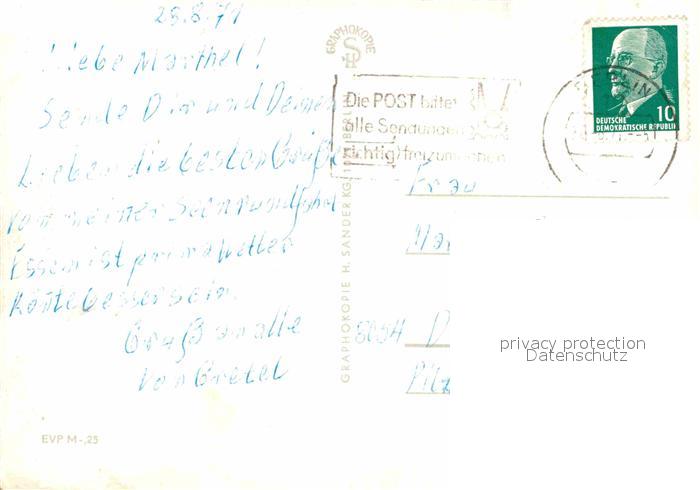 28.8.71
Liebe Marthel!
Sende Dir und Deinen
Lieben die besten Grüße
von meiner
Essen ist prima Wetter
könte besser sein.
Gruß an alle
von Gretel
EVP M -,25
GRAPHOKOPIE
GRAPHOKOPIE H. SANDER KG, BERLIN
Die POST bittet
alle Sendungen
richtig freizumachen
BERLIN
10
DEUTSCHE
DEMOKRATISCHE REPUBLIK
Frau
8054 D
privacy protection
Datenschutz